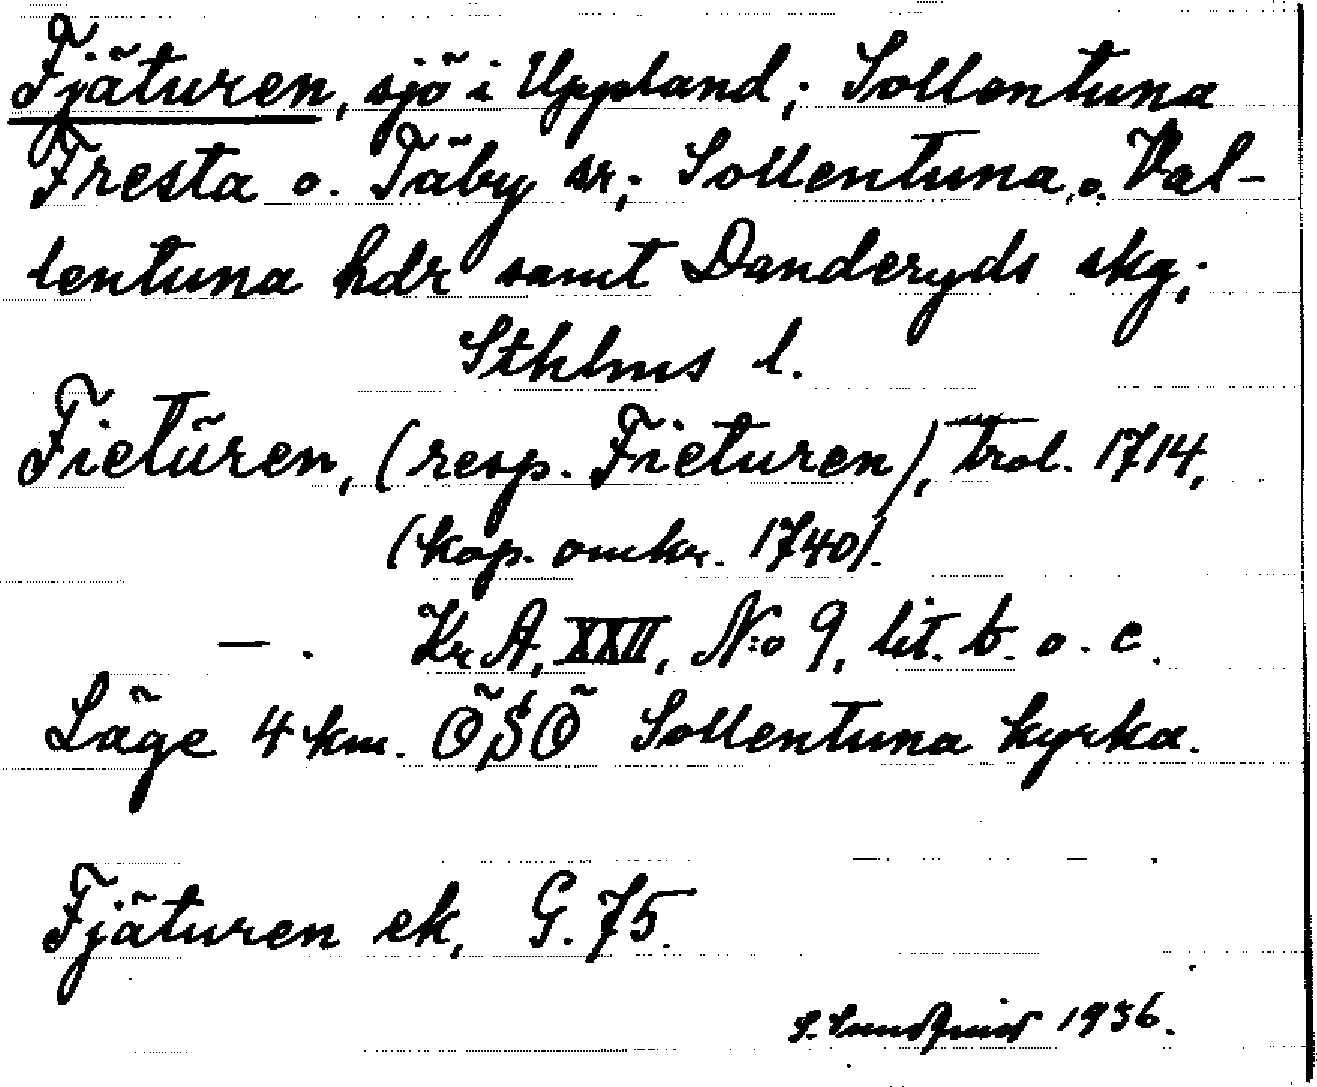 Fjäturen, sjö i Uppland; Sollentuna
Fresta o. Täby sr; Sollentuna o. Val-
lentuna hdr samt Danderyds skg;
Sthlms l.
Fietüren, (resp. Fieturen), trol. 1714,
(kop. omkr. 1740).
— . Kr A, XXII, N:o 9, lit. b. o. c.
Läge 4 km. ÖSÖ Sollentuna kyrka.
Fjäturen ek, G. 75.
S. Lundqvist 1936.